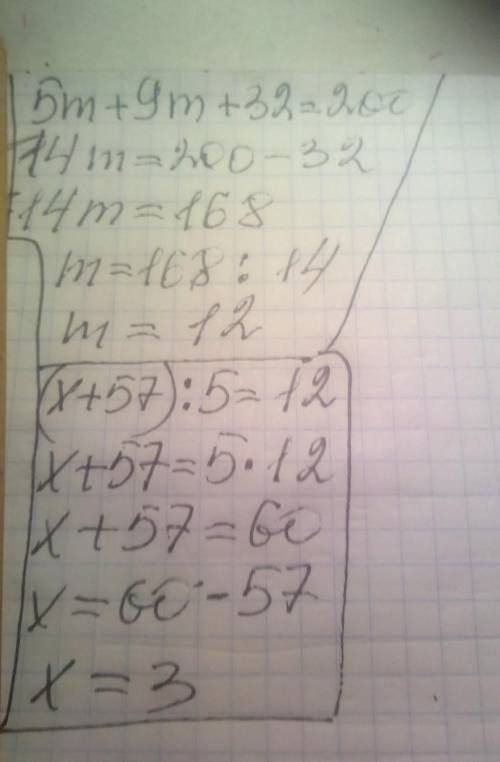 5m+9m+32=200
14m=200-32
14m=168
m=168:14
m=12
(x+57):5=12
x+57=5·12
x+57=60
x=60-57
x=3